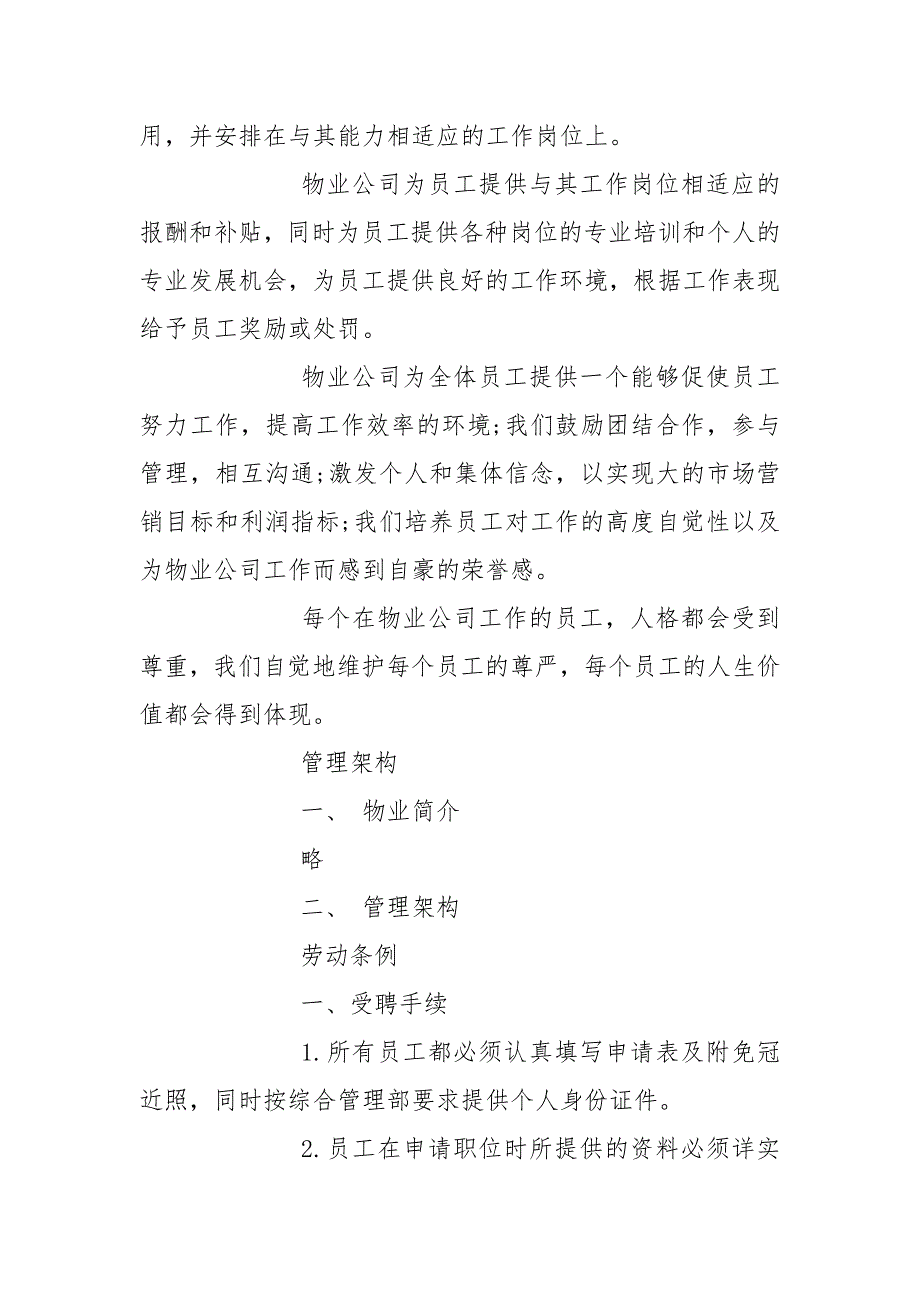 用，并安排在与其能力相适应的工作岗位上。
物业公司为员工提供与其工作岗位相适应的
报酬和补贴，同时为员工提供各种岗位的专业培训和个人的
专业发展机会，为员工提供良好的工作环境，根据工作表现
给予员工奖励或处罚。
物业公司为全体员工提供一个能够促使员工
努力工作，提高工作效率的环境;我们鼓励团结合作，参与
管理，相互沟通;激发个人和集体信念，以实现大的市场营
销目标和利润指标;我们培养员工对工作的高度自觉性以及
为物业公司工作而感到自豪的荣誉感。
每个在物业公司工作的员工，人格都会受到
尊重，我们自觉地维护每个员工的尊严，每个员工的人生价
值都会得到体现。
管理架构
一、 物业简介
略
二、 管理架构
劳动条例
一、受聘手续
1.所有员工都必须认真填写申请表及附免冠
近照，同时按综合管理部要求提供个人身份证件。
2.员工在申请职位时所提供的资料必须详实